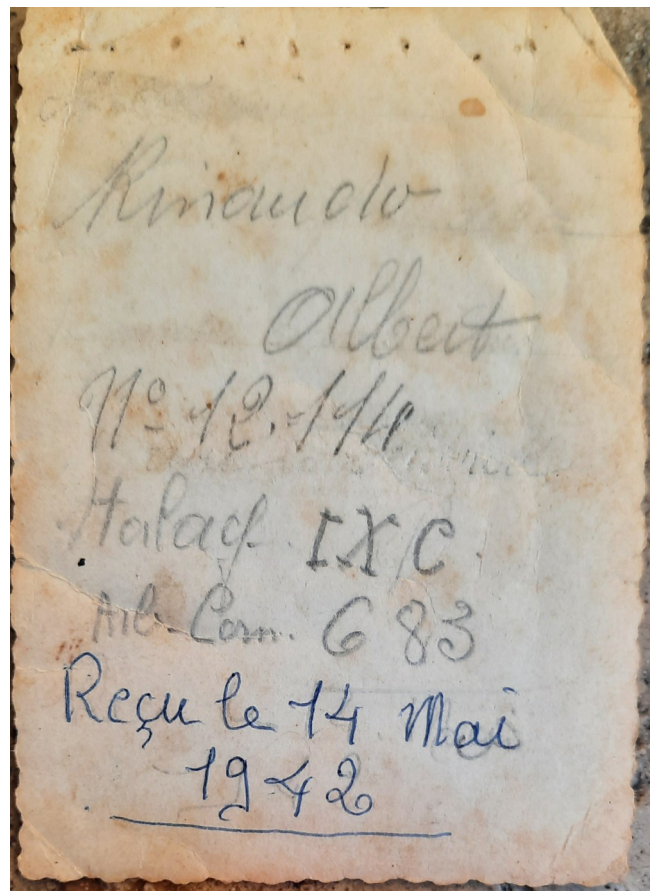 Rinaudo
Albert
Nº 12.114
Stalag IX C.
Arb. Com. 683
Reçu le 14 Mai
1942